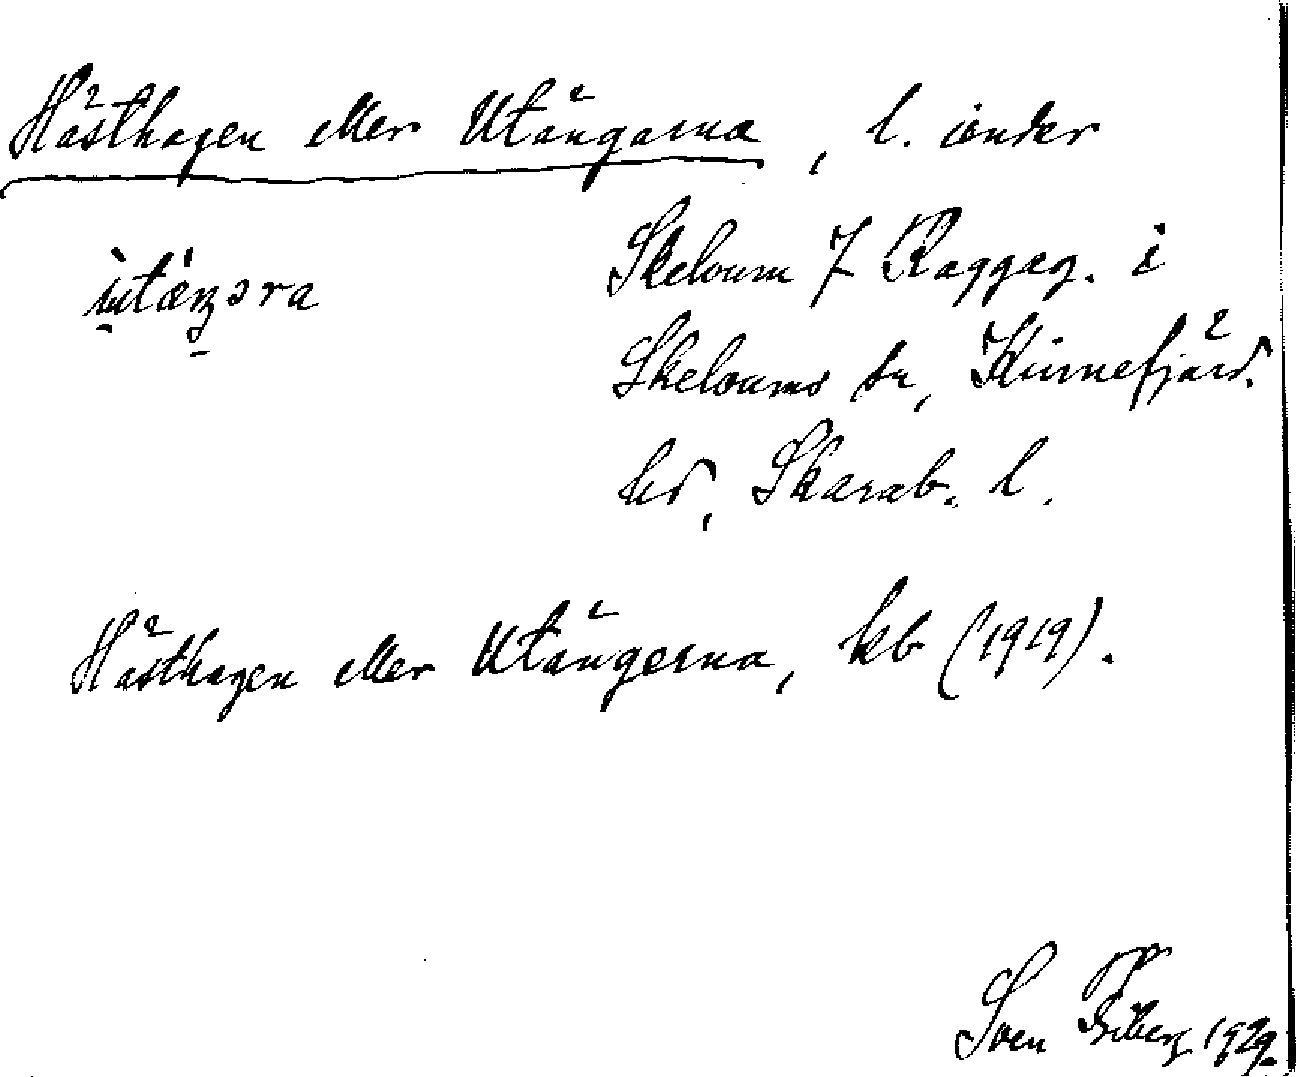 Hästhagen eller Utängarna, l. under
Skelvum 7 Raggeg. i
ùtæ̀ŋɔra
Skelvums sn, Kinnefjärd.
hd, Skarab. l.
Hästhagen eller Utängerna, kb (1919).
Sven Friberg 1929.